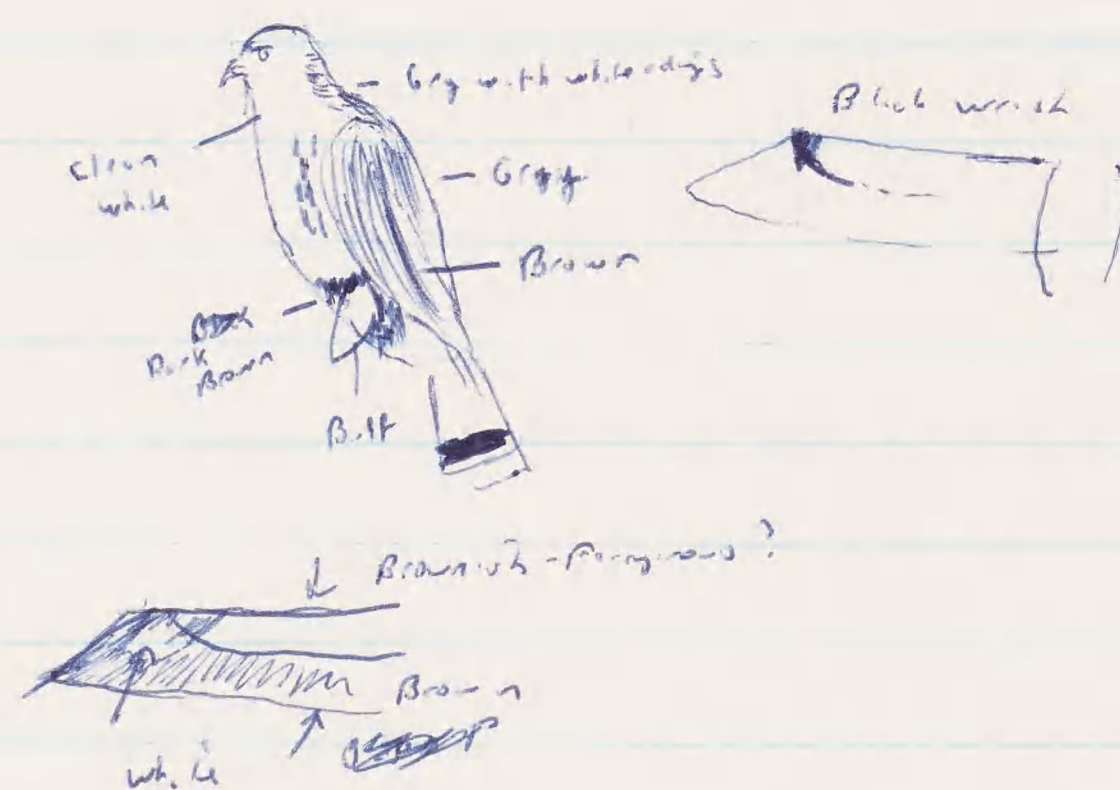 Gry with white edgigs
Black wrist
Clean
white
Gryy
Brown
Dark
Brown
Buff
Brownish - Ferrginous?
Brown
white